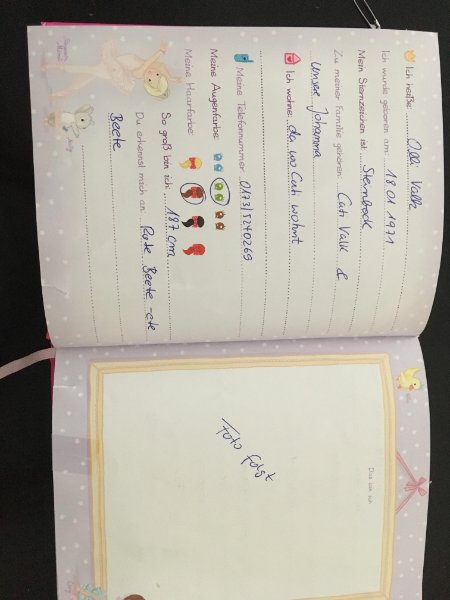 Ich heiße: Olli Valk
Ich wurde geboren am: 18.01.1971
Mein Sternzeichen ist: Steinbock
Zu meiner Familie gehören: Cati Valk &
unser Johanna
Ich wohne: da, wo Cati wohnt
Meine Telefonnummer: 0173/5270269
Meine Augenfarbe:
Meine Haarfarbe:
So groß bin ich: 187 cm
Du erkennst mich an: Rote Beete -cte
Beete
Das bin ich
Foto folgt